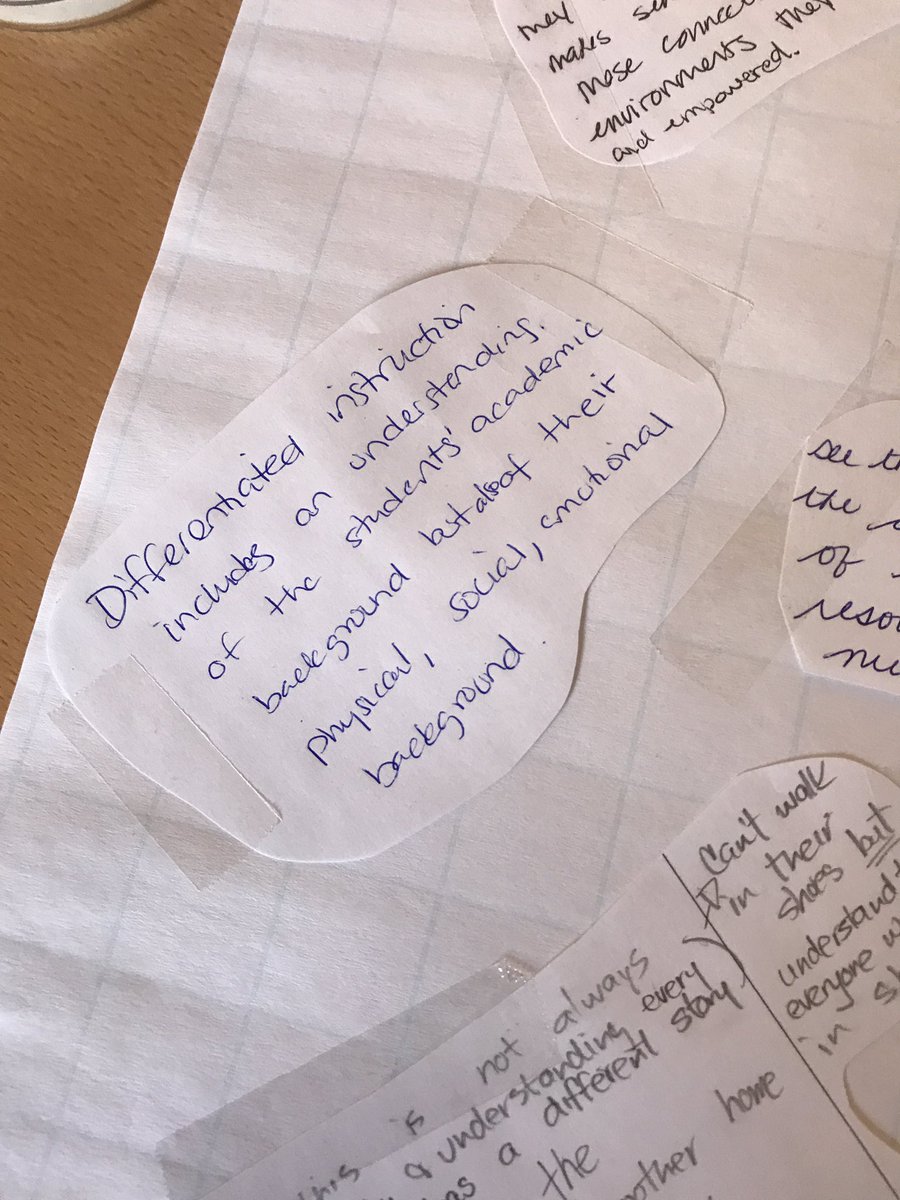 they
makes
most connec
environments they
and empowered.
Differentiated instruction
includes an understanding.
of the students' academic
background but also of their
physical, social, emotional
background.
see
the
of
Can't walk
in their
shoes but
understand
everyone
in
this is not always
& understanding every
has a different story
the
mother home